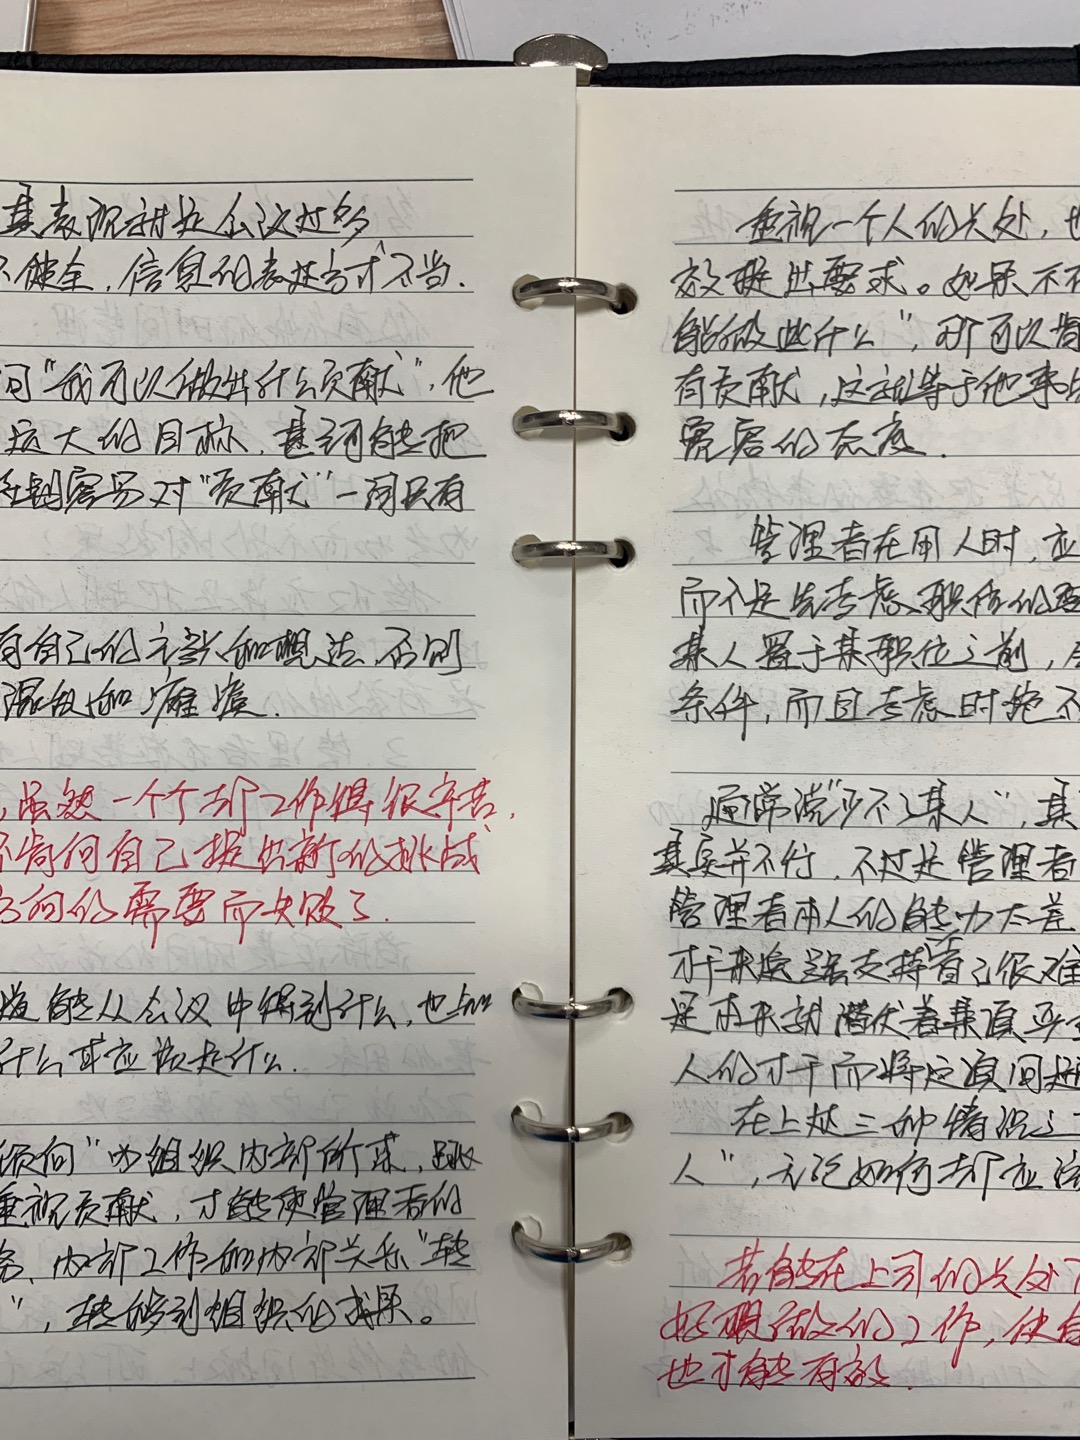 其表现就是会议过多
不健全，信息的表达方式不当.
问“我可以做出什么贡献”，他
远大的目标，甚河能把
对“贡献”一词只有
有自己的主张和想法，否则
混敌和瘫痪.
，虽然一个个都工作得很辛苦，
不肯向自己提出新的挑战
方向的需要而失败了.
能从会议中得到什么，也知
什么或应该是什么.
须向“为组织内部所求，跳
重视贡献，才能使管理者的
务、内部工作和内部关系“转
”，转移到组织的成果。
重视一个人的长处，也
效提出要求。如果不
能做些什么”，那可以肯
有贡献，这就等于他事
宽容的态度.
管理者在用人时，应
而不是先考虑职位的要
某人置于某职位之前，
条件，而且考虑时绝不
通常说“少不了某人”，其
其实并不行，不过是管理者
管理者本人的能力太差
才干来支持自己很难
是本来就潜伏着某项严重
人的才干而将这项问题
在上述三种情况之下
人”，无论如何都应该
若能在上司的长处
好顺做的工作，使
也才能有效.